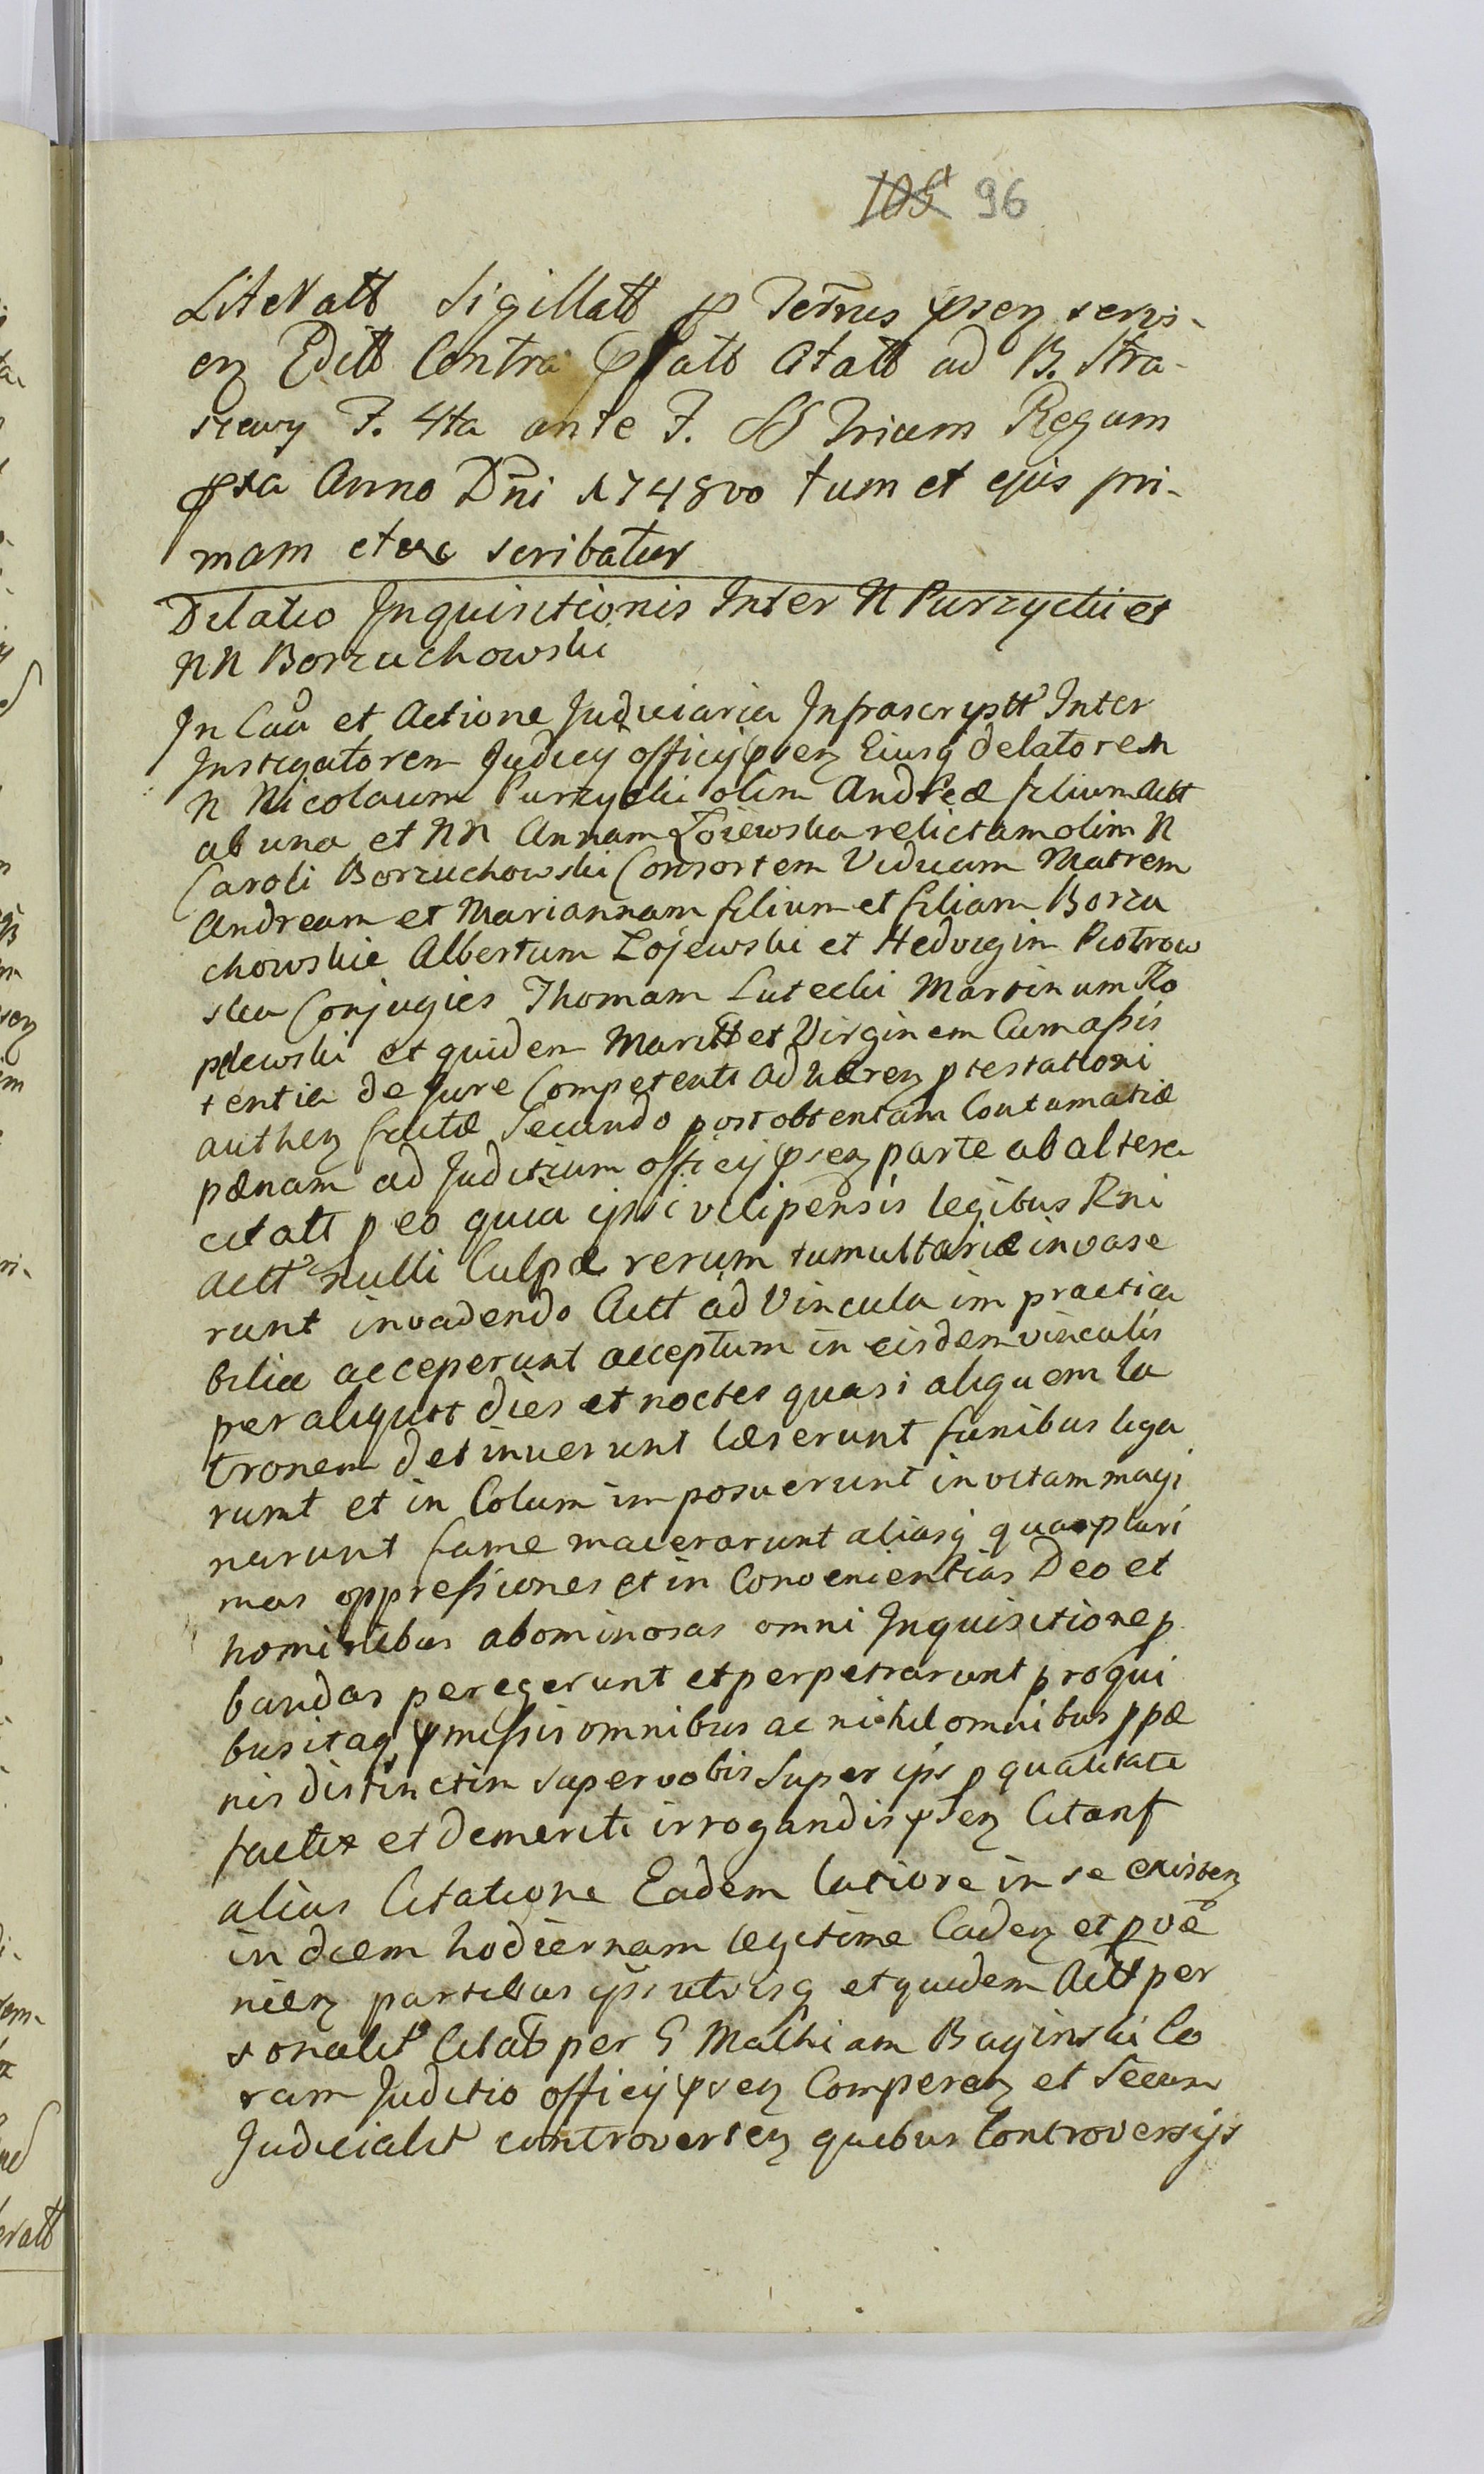 105a 96
LiteNatt Sigillatt p Ternus psen servi-
en Editt Contra Citatt ad B. Stra-
szewy F. 4ta ante F. SS Trium Regum
pxa Anno Dni 1748vo tum et ejus pri-
mam etc scribatur
Delatio Inquisitionis Inter N Purzycki et
NN Borzuchowski
In Caa et Actione Judiciaria Infrascriptt Inter
Instigatorem Judicij officij psen Eiusq delatorem
N Nicolaum Purzycki olim Andreæ filium Act
ab una et NN Annam Łoiewska relictam olim N
Caroli Borzuchowski Consortem Viduam Matrem
Andream et Mariannam filium et filiam Borzu
chowskie Albertum Łojewski et Hedvigim Piotrow
ska Conjugies Thomam Lutecki Martinum Ro
plewski et quidem Maritt et Virginem Cum assis
tentia de Jure Competenti ad hæren ptestationi
authen factæ Secundo post obtentam Contumatiæ
pænam ad Juditium officij psen parte ab altera
citatt p eo quia ipsi vilipensis legibus Rni
actt nulli Culpæ rerum tumultariæ invase
runt invadendo Act ad Vincula impractica
bilia acceperunt acceptum in eisdem vinculis
per aliquot dies et noctes quasi aliquem la
tronem detinuerunt læserunt funibus liga
runt et in Colum imposuerunt in vitam magi
narunt fame macerarunt aliasq quaplari
mas oppressiones et in Convenientias Deo et
hominibus abominosas omni Inquisitione p
bandas peregerunt et perpetrarunt pro qui
bus itaq pmissis omnibus ac nihil omnibus ppæ
nis distinctim super vobis Super ips p qualitate
facti et demeriti irrogandis psen Citant
alias Citatione Eadem latiore in se existen
in diem hodiernam legitime Caden et pve
nien partibus ipsi utrisq et quidem Actt per
sonalit Citatt per G Mathiam Baginski Co
ram Juditio officij psen Comperen et Secum
Judicialit controverten quibus Controversijs